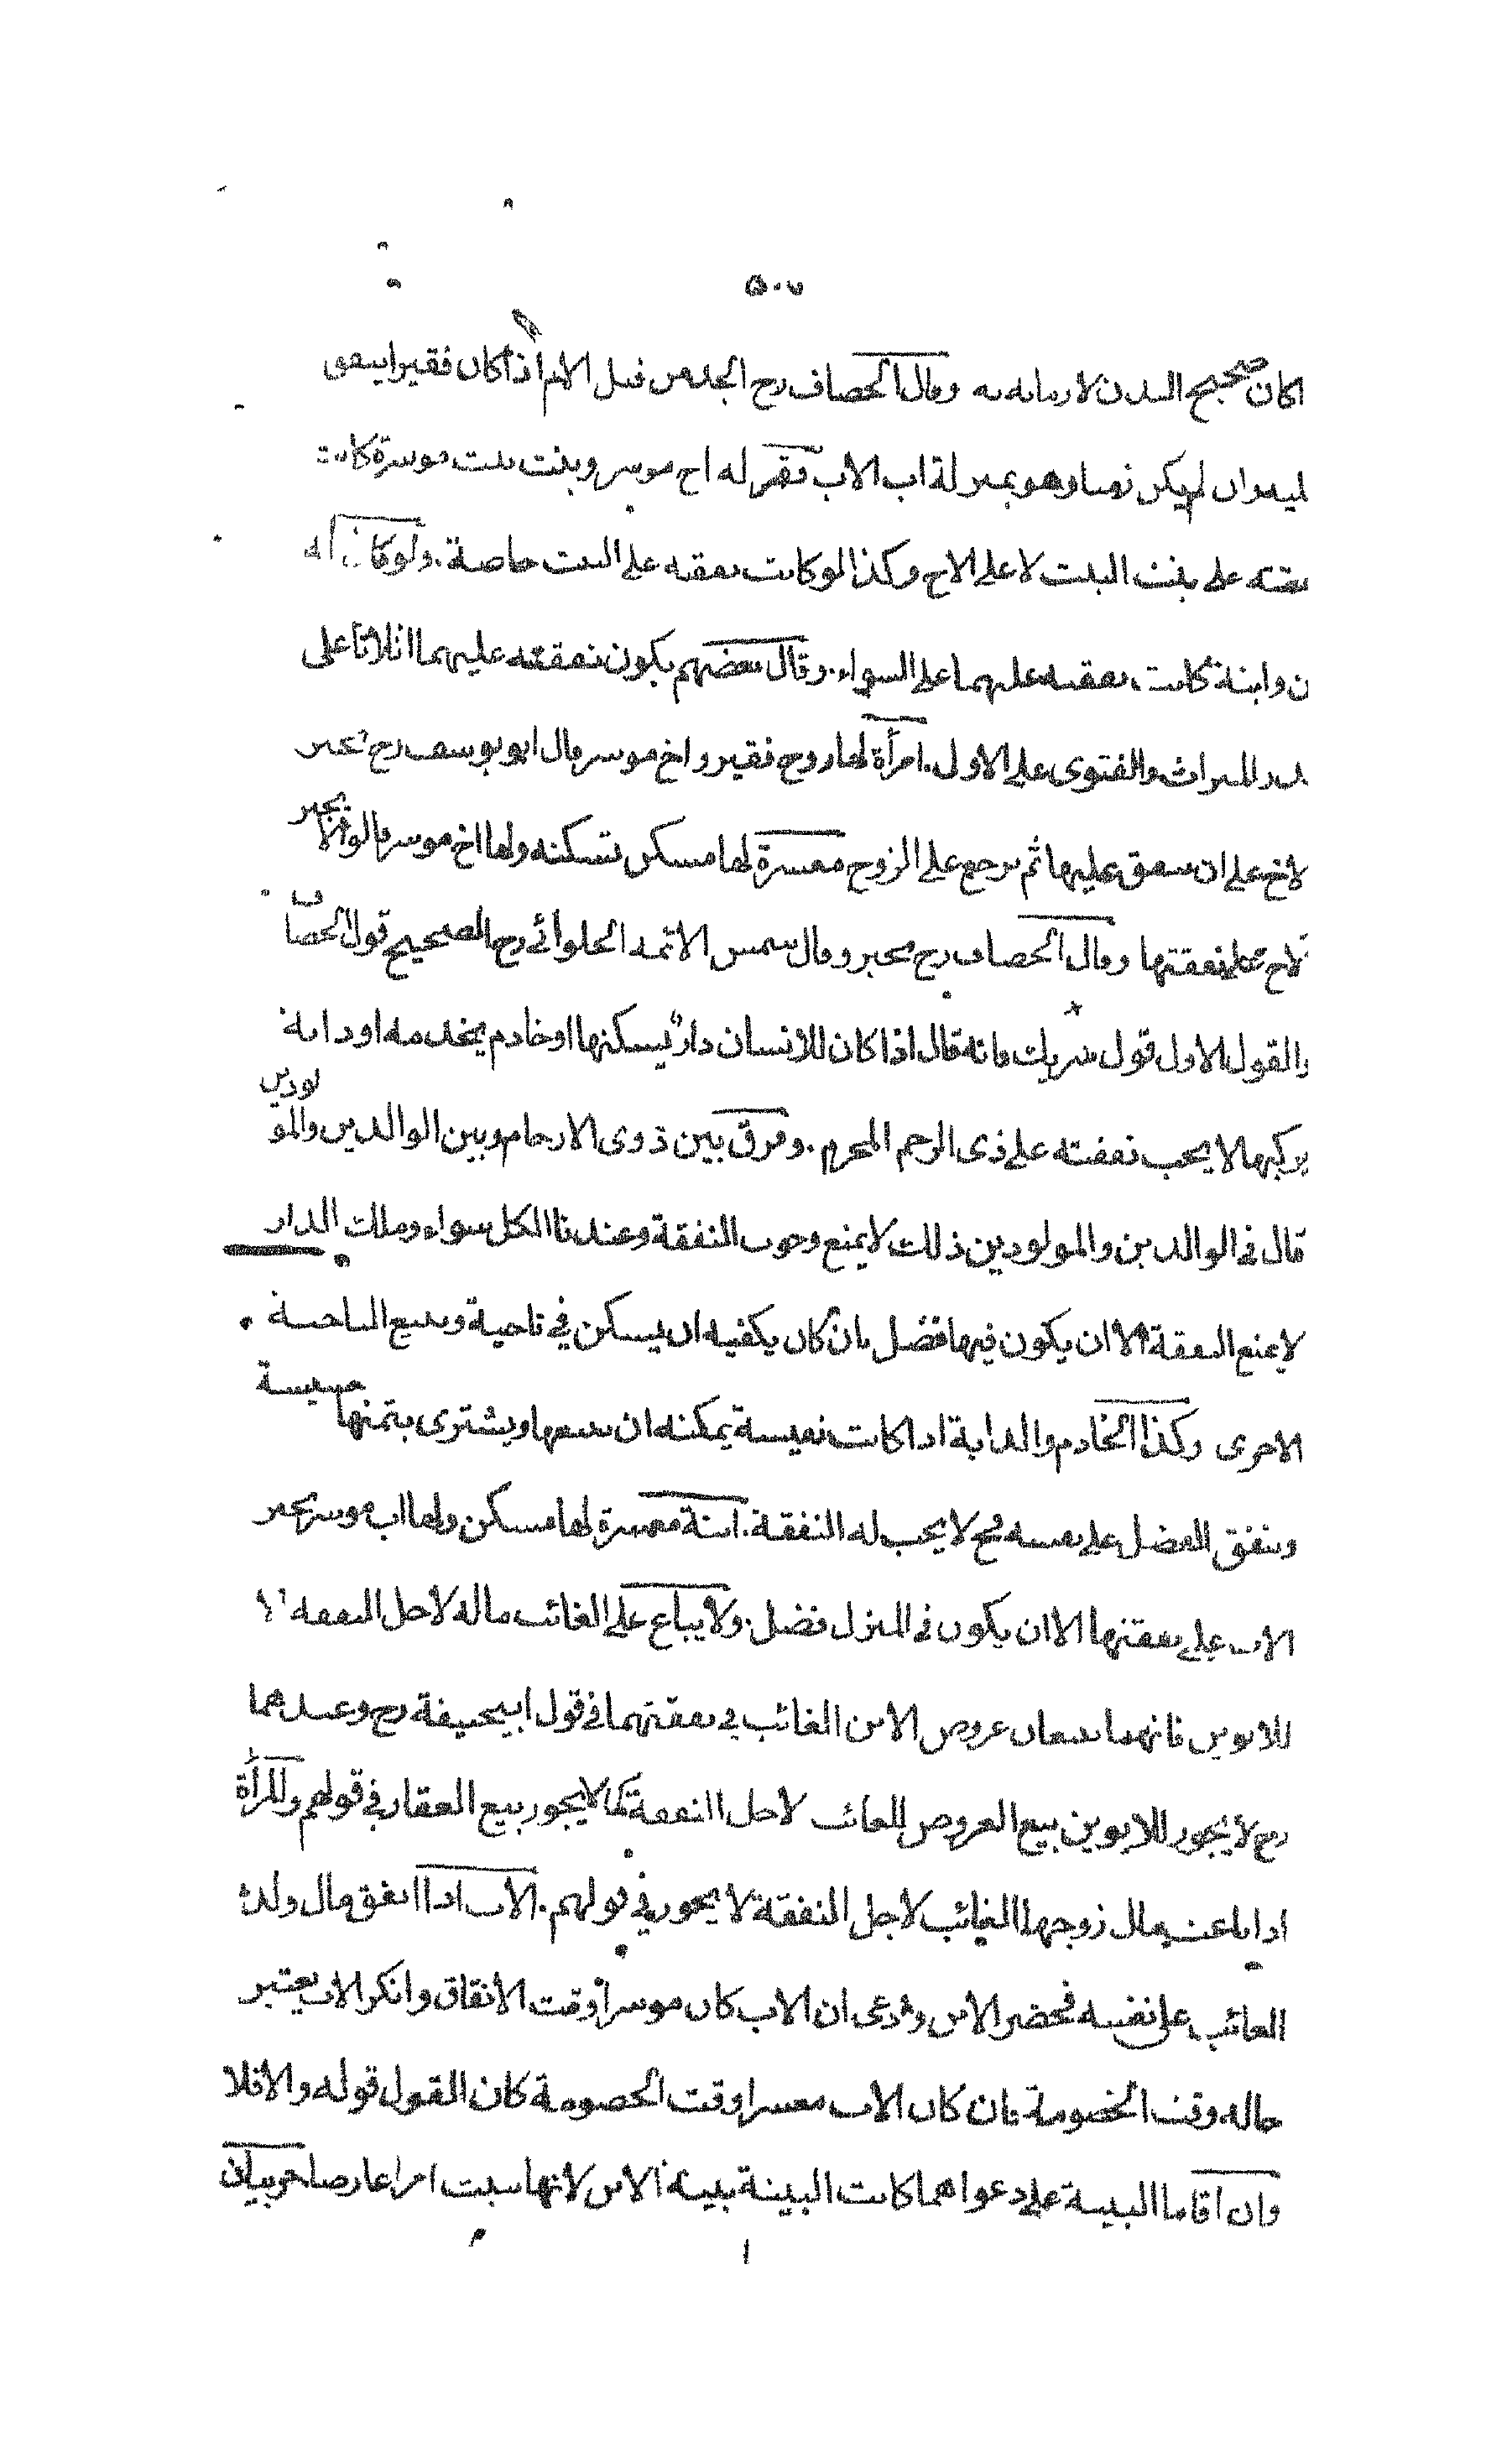 ٥٠٧
كان صحيح البدن لا زمانة به وقال الخصاف رح الجد من قبل الام اذا كان فقيرا ينفق
ليه وان لم يكن زمنا وهو بمنزلة اب الاب فقير له اخ موسر وبنت بنت موسرة كانت
نفقته على بنت البنت لا على الاخ وكذا لو كانت نفقته على البنت خاصة . ولو كان له
ن وابنة كانت نفقته عليهما على السواء . وقال بعضهم يكون نفقته عليهما اثلاثا على
قدر الميراث والفتوى على الاول . امرأة لها زوج فقير واخ موسر قال ابو يوسف رح يجبر
لاخ على ان ينفق عليها ثم يرجع على الزوج معسرة لها مسكن تسكنه ولها اخ موسر قالوا لا يجبر
لاخ على نفقتها وقال الخصاف رح يجبر وقال شمس الائمة الحلوائي رح الصحيح قول الخصاف
والقول الاول قول شريك فانه قال اذا كان للانسان دار يسكنها او خادم يخدمه او دابة
يركبها لا يجب نفقته على ذى الرحم المحرم . وفرق بين ذوى الارحام وبين الوالدين والمولودين
قال في الوالدين والمولودين ذلك لا يمنع وجوب النفقة وعندنا الكل سواء وملك الدار
لا يمنع النفقة الا ان يكون فيها فضل بان كان يكفيه ان يسكن في ناحية ويبيع الناحية
الاخرى وكذا الخادم والدابة اذا كانت نفيسة يمكنه ان يبيعها ويشترى بثمنها خسيسة
وينفق الفضل على نفسه فح لا يجب له النفقة . ابنة معسرة لها مسكن ولها اب موسر يجبر
الاب على نفقتها الا ان يكون في المنزل فضل . ولا يباع على الغائب ماله لاجل النفقة الا
للابوين فانهما يبيعان عروض الابن الغائب في نفقتهما في قول ابيحنيفة رح وعندهما
رح لا يجوز للابوين بيع العروض للغائب لاجل النفقة كما لا يجوز بيع العقار في قولهم والمرأة
اذا باعت مال زوجها الغائب لاجل النفقة لا يجوز في قولهم . الاب اذا انفق مال ولده
الغائب على نفسه فحضر الابن وادعى ان الاب كان موسرا وقت الانفاق وانكر الاب يعتبر
حاله وقت الخصومة فان كان الاب معسرا وقت الخصومة كان القول قوله والا فلا
وان اقاما البينة على دعواهما كانت البينة بينة الابن لانها تثبت امرا عارضا حربيان